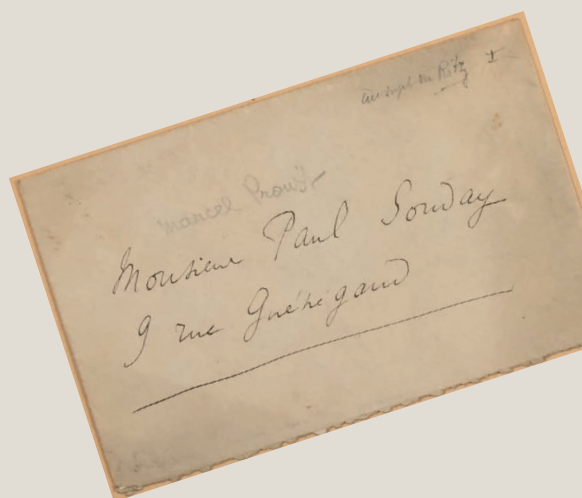 au sujet du Ritz I
Marcel Proust
Monsieur Paul Souday
9 rue Guénégaud